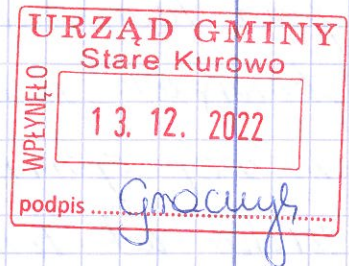 URZĄD GMINY
Stare Kurowo
WPŁYNĘŁO
13. 12. 2022
podpis